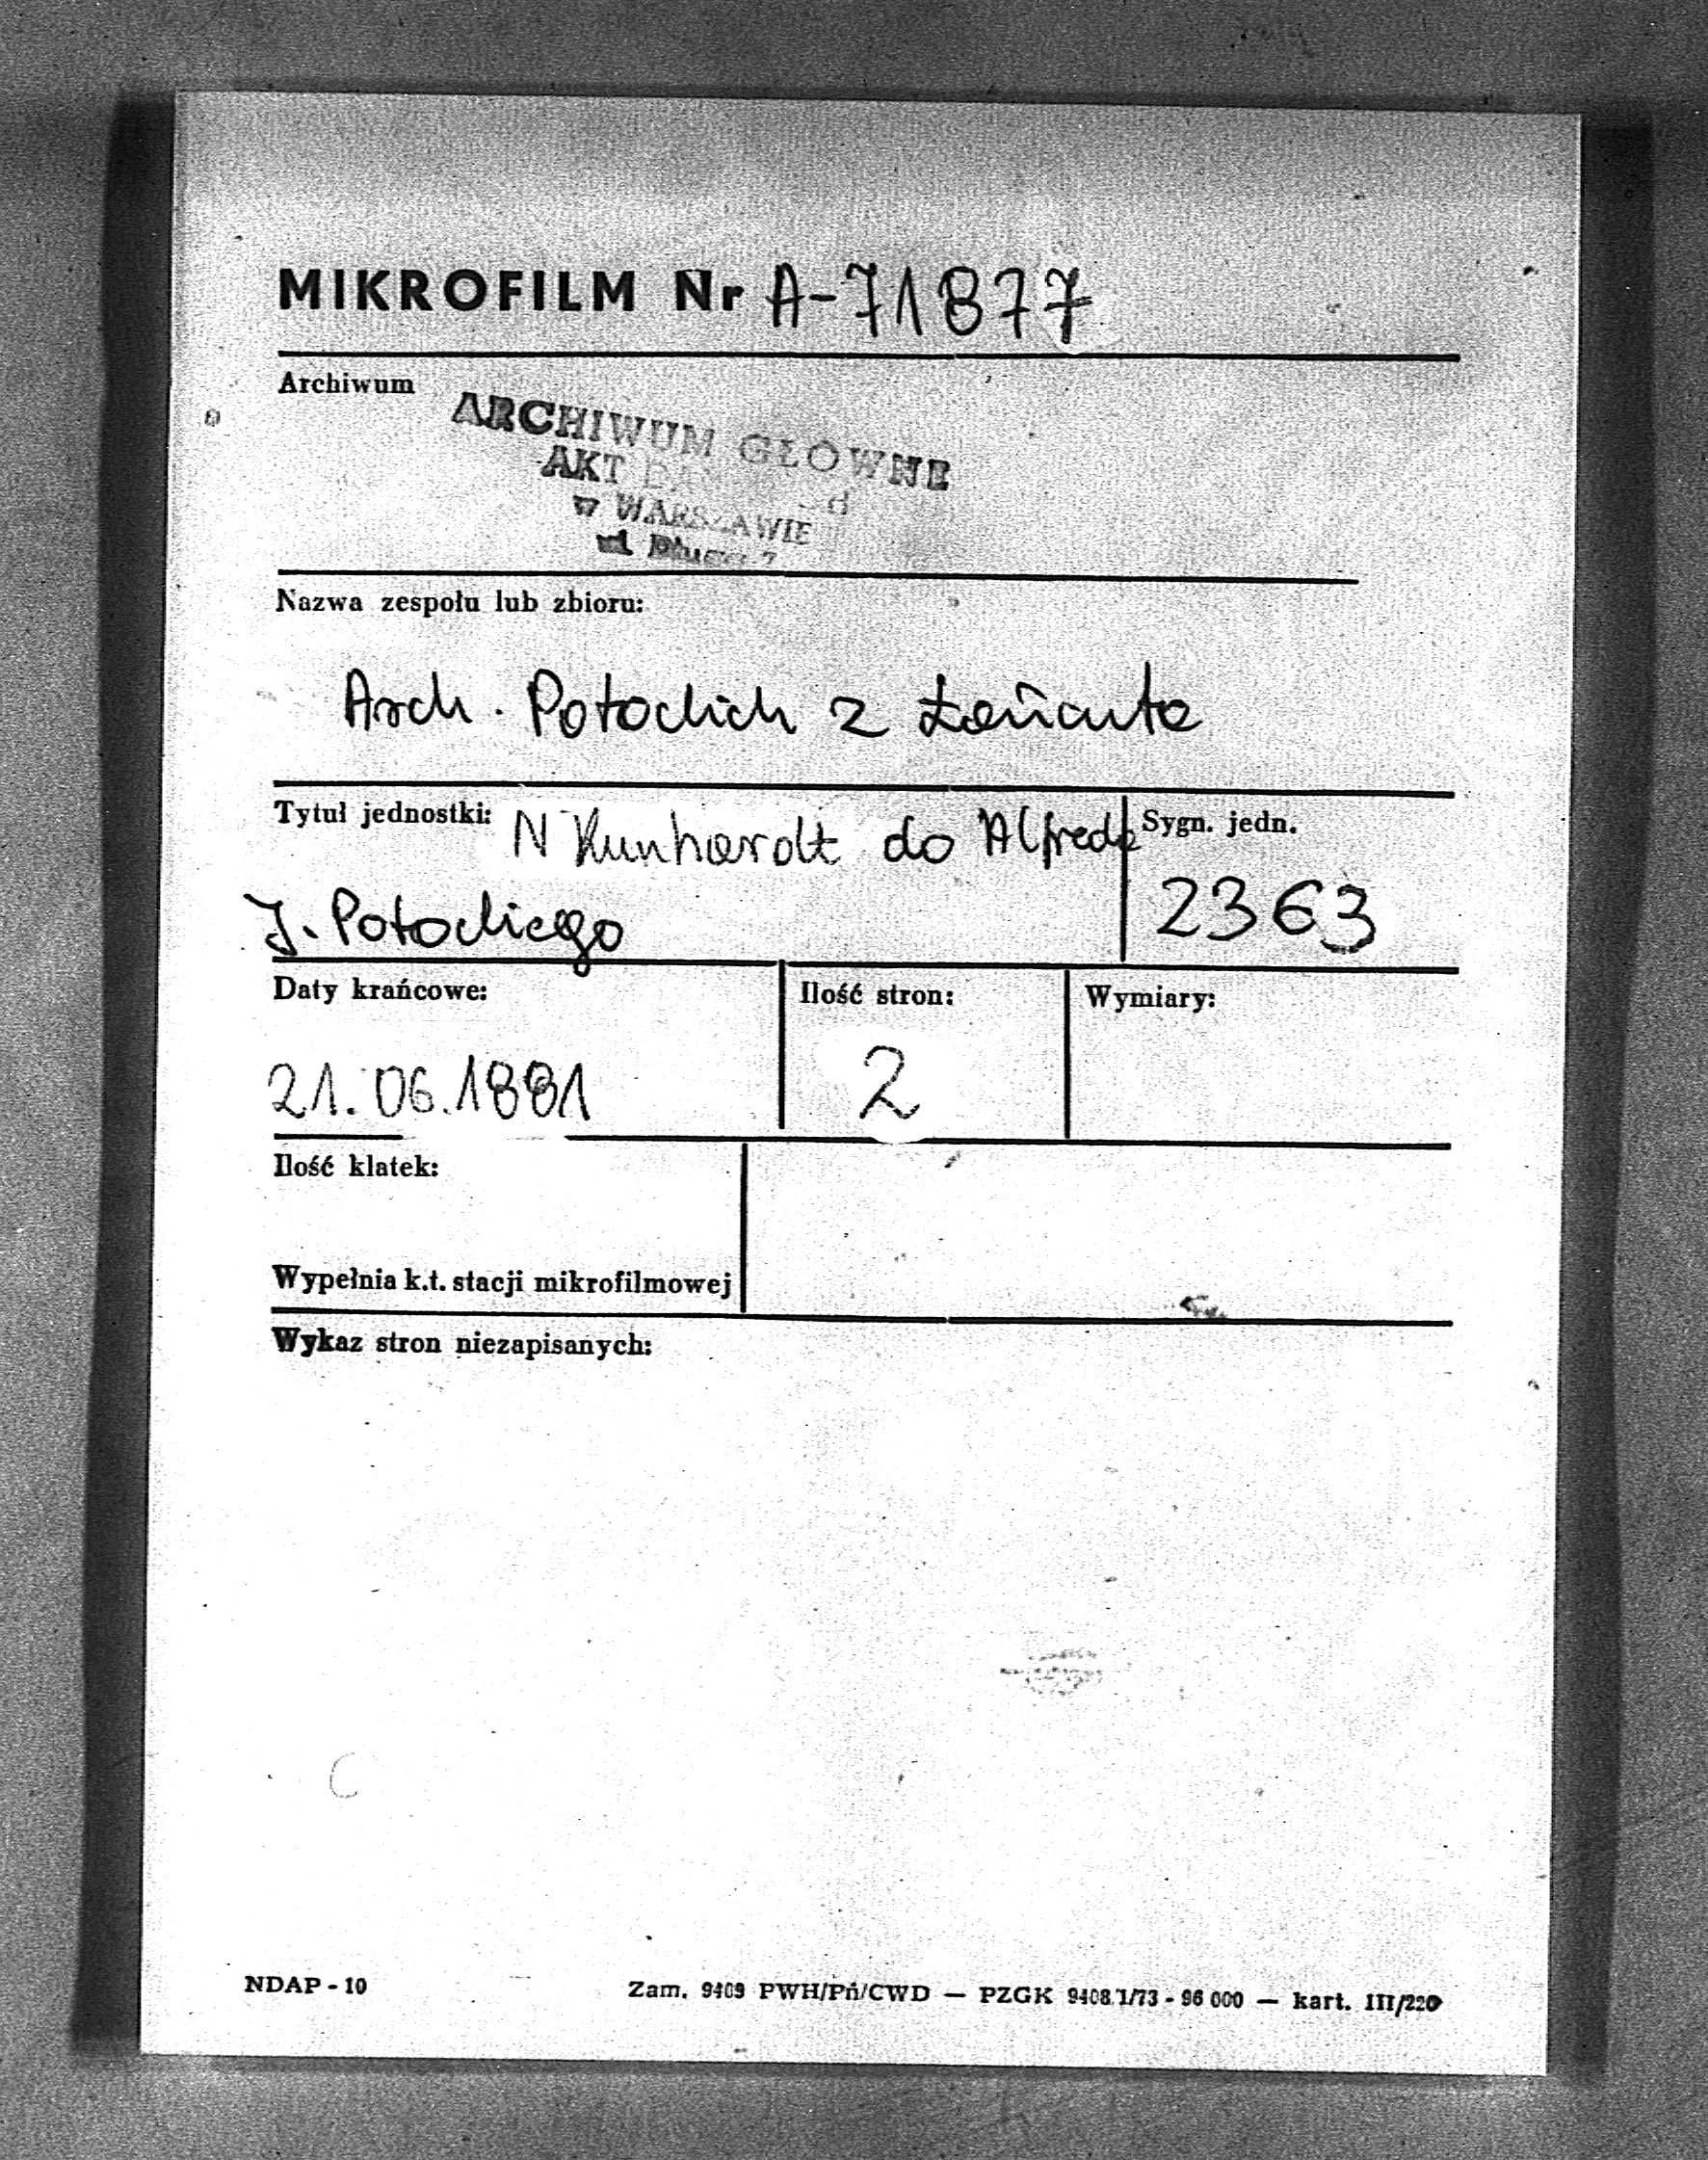 MIKROFILM Nr A-71877
Archiwum
ARCHIWUM GŁÓWNE
AKT
w WARSZAWIE
ul Długa 7
Nazwa zespołu lub zbioru:
Arch. Potockich z Łańcuta
Tytuł jednostki: N Kunhardt do Alfreda
Sygn. jedn.
J. Potockiego
2363
Daty krańcowe:
Ilość stron:
Wymiary:
21.06.1881
2
Ilość klatek:
Wypełnia k.t. stacji mikrofilmowej
Wykaz stron niezapisanych:
NDAP - 10
Zam. 9409 PWH/Pń/CWD — PZGK 9408.1/73 - 96 000 — kart. III/220